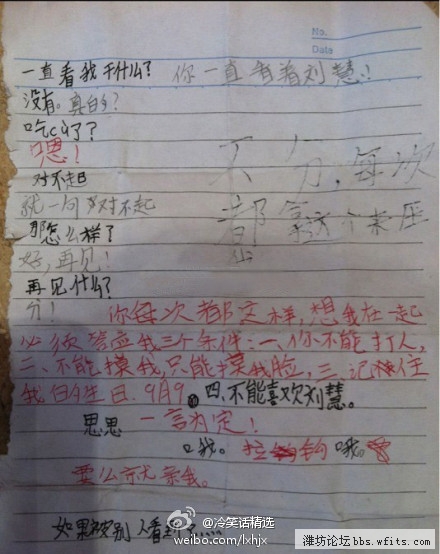 No.
Date
一直看我干什么? 你一直看着刘慧!
没有。真的?
吃cu了?
嗯!
对不起
就一句对不起
不分,每次
都拿这个来压
那怎么样了?
好,再见!
再见什么?
分! 你每次都这样,想我在一起
必须答应我三个条件:一、你不能打人,
二、不能摸我,只能摸我脸,三、记住
我的生日.9月9。四、不能喜欢刘慧。
思思 一言为定!
口我。拉钩 哦。
要么亲亲我。
如果被别人看到
@冷笑话精选
weibo.com/lxhjx
潍坊论坛 bbs.wfits.com